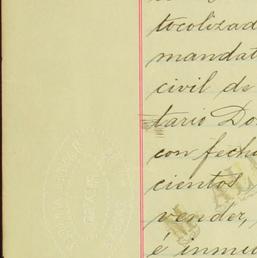 tocolizad
mandat
civil de
tario Do
con fech
cientos
vender,
é inmu